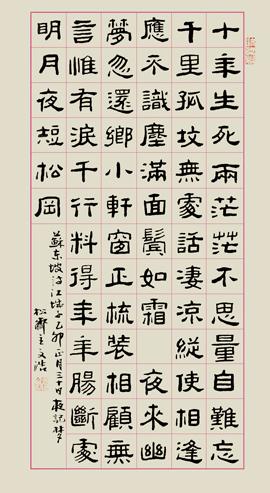 十年生死兩茫茫不思量自難忘
千里孤墳無處話淒涼縱使相逢
應不識塵滿面鬢如霜 夜來幽
夢忽還鄉小軒窗正梳裝相顧無
言惟有淚千行料得年年腸斷處
明月夜短松岡
蘇東坡江城子乙卯正月三十日夜記夢
松齋主文浩